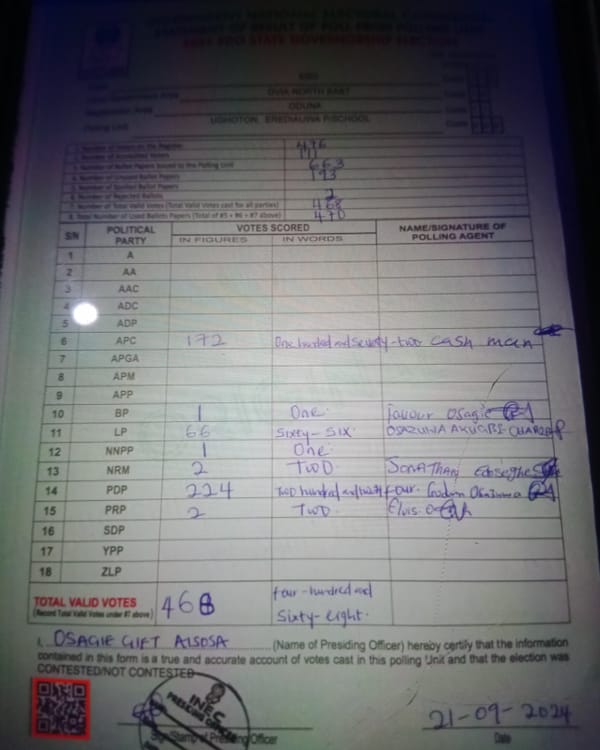 INDEPENDENT NATIONAL ELECTORAL COMMISSION
STATEMENT OF RESULT OF POLL FROM POLLING UNIT
2024 EDO STATE GOVERNORSHIP ELECTION
EDO
OVIA NORTH EAST
ODUNA
Polling Unit UGHOTON, EREDIAUWA P/SCHOOL
1. Number of Voters on the Register
2. Number of Accredited Voters
3. Number of Ballot Papers Issued to the Polling Unit 663
4. Number of Unused Ballot Papers 193
5. Number of Spoiled Ballot Papers
6. Number of Rejected Ballots 2
7. Number of Total Valid Votes (Total Valid Votes cast for all parties) 468
8. Total Number of Used Ballot Papers (Total of #5 + #6 + #7 above) 470
S/N POLITICAL PARTY VOTES SCORED NAME/SIGNATURE OF POLLING AGENT
IN FIGURES IN WORDS
1 A
2 AA
3 AAC
4 ADC
5 ADP
6 APC 172 One hundred and seventy-two cash man
7 APGA
8 APM
9 APP
10 BP 1 One. favour osagie
11 LP 66 Sixty-Six OSAZUWA
12 NNPP 1 One.
13 NRM 2 TWO. JONATHAN
14 PDP 224 Two hundred and twenty four. Godwin
15 PRP 2 TWO. Elvis
16 SDP
17 YPP
18 ZLP
TOTAL VALID VOTES 468 four-hundred and
(Record Total Valid Votes under #7 above) Sixty-eight.
I, OSAGIE GIFT (Name of Presiding Officer) hereby certify that the information
contained in this form is a true and accurate account of votes cast in this polling Unit and that the election was
CONTESTED/NOT CONTESTED
INEC
PRESIDING OFFICER
21-09-2024
Sign/Stamp of Presiding Officer Date